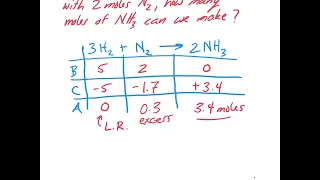 with 2 moles N₂, how many
moles of NH₃ can we make ?
3H₂ + N₂ → 2NH₃
B 5 2 0
C -5 -1.7 +3.4
A 0 0.3 3.4 moles
↑L.R. excess